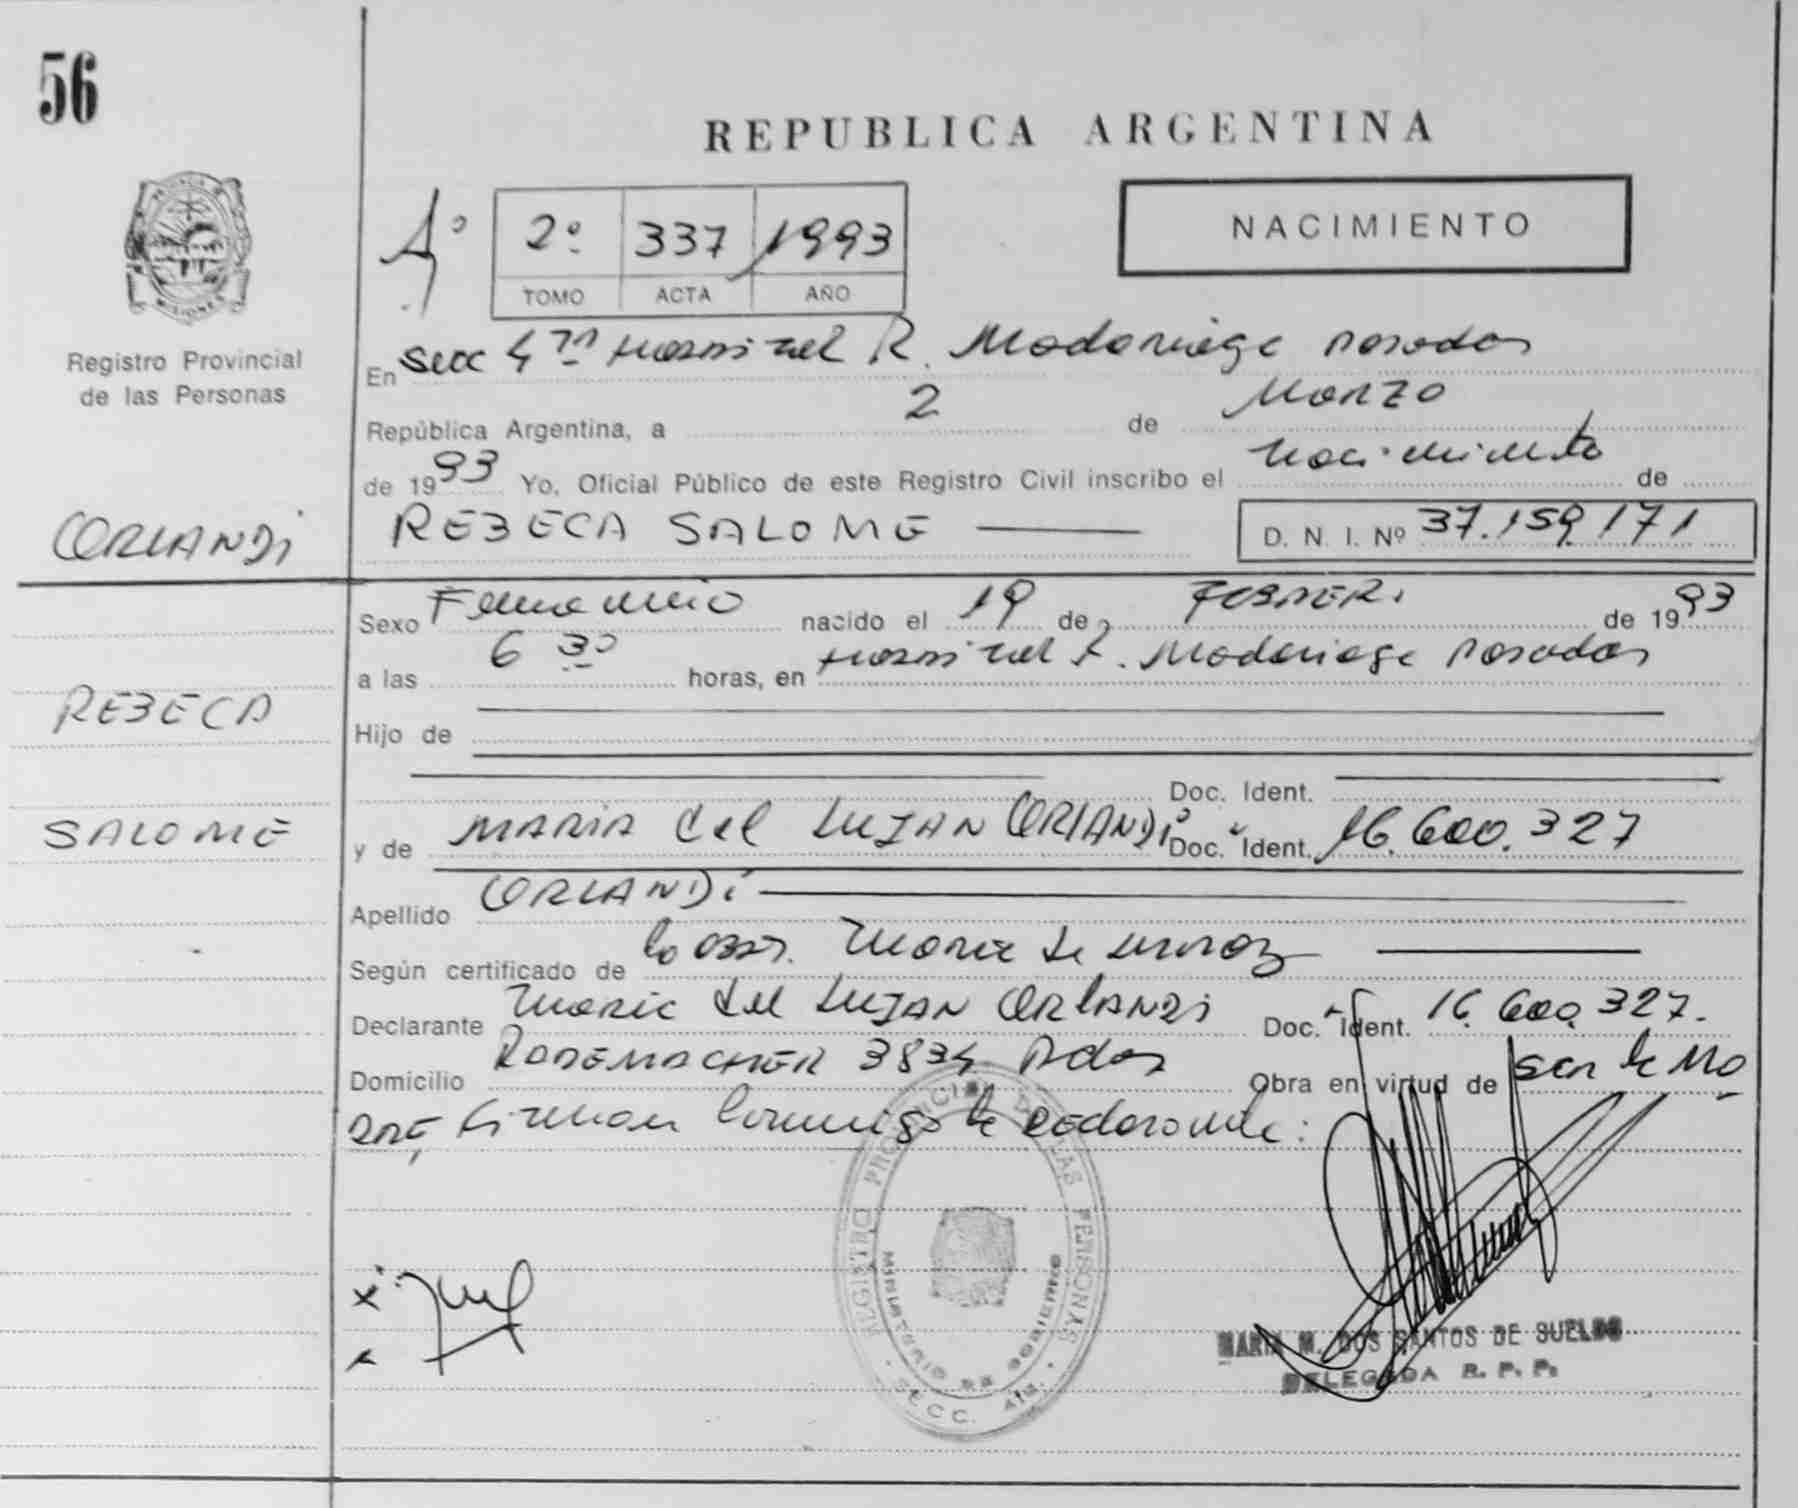 56
REPUBLICA ARGENTINA
Aº 2º 337 1993
TOMO ACTA AÑO
NACIMIENTO
Registro Provincial
de las Personas
MISIONES
En Secc 4ta Hospital R. Madariaga Posadas
República Argentina, a 2 de Marzo
de 1993 Yo, Oficial Público de este Registro Civil inscribo el Nacimiento de
ORLANDI
REBECA SALOME
D. N. I. Nº 37.159.171
Sexo Femenino nacido el 19 de FEBRERO de 1993
a las 6 30 horas, en Hospital R. Madariaga Posadas
REBECA
Hijo de
Doc. Ident.
SALOME
y de MARIA del LUJAN ORLANDI Doc. Ident. 16.600.327
Apellido ORLANDI
Según certificado de la Obst. Maria de
Declarante Maria del LUJAN ORLANDI Doc. Ident. 16.600.327.
Domicilio RADEMACHER 3834 Pdas Obra en virtud de ser la Ma
dre, firman conmigo la declarante:
REGISTRO PROVINCIAL DE LAS PERSONAS
MINISTERIO DE GOBIERNO
SECC. 4ta.
MARIA M. DOS SANTOS DE SUELDO
DELEGADA R. P. P.